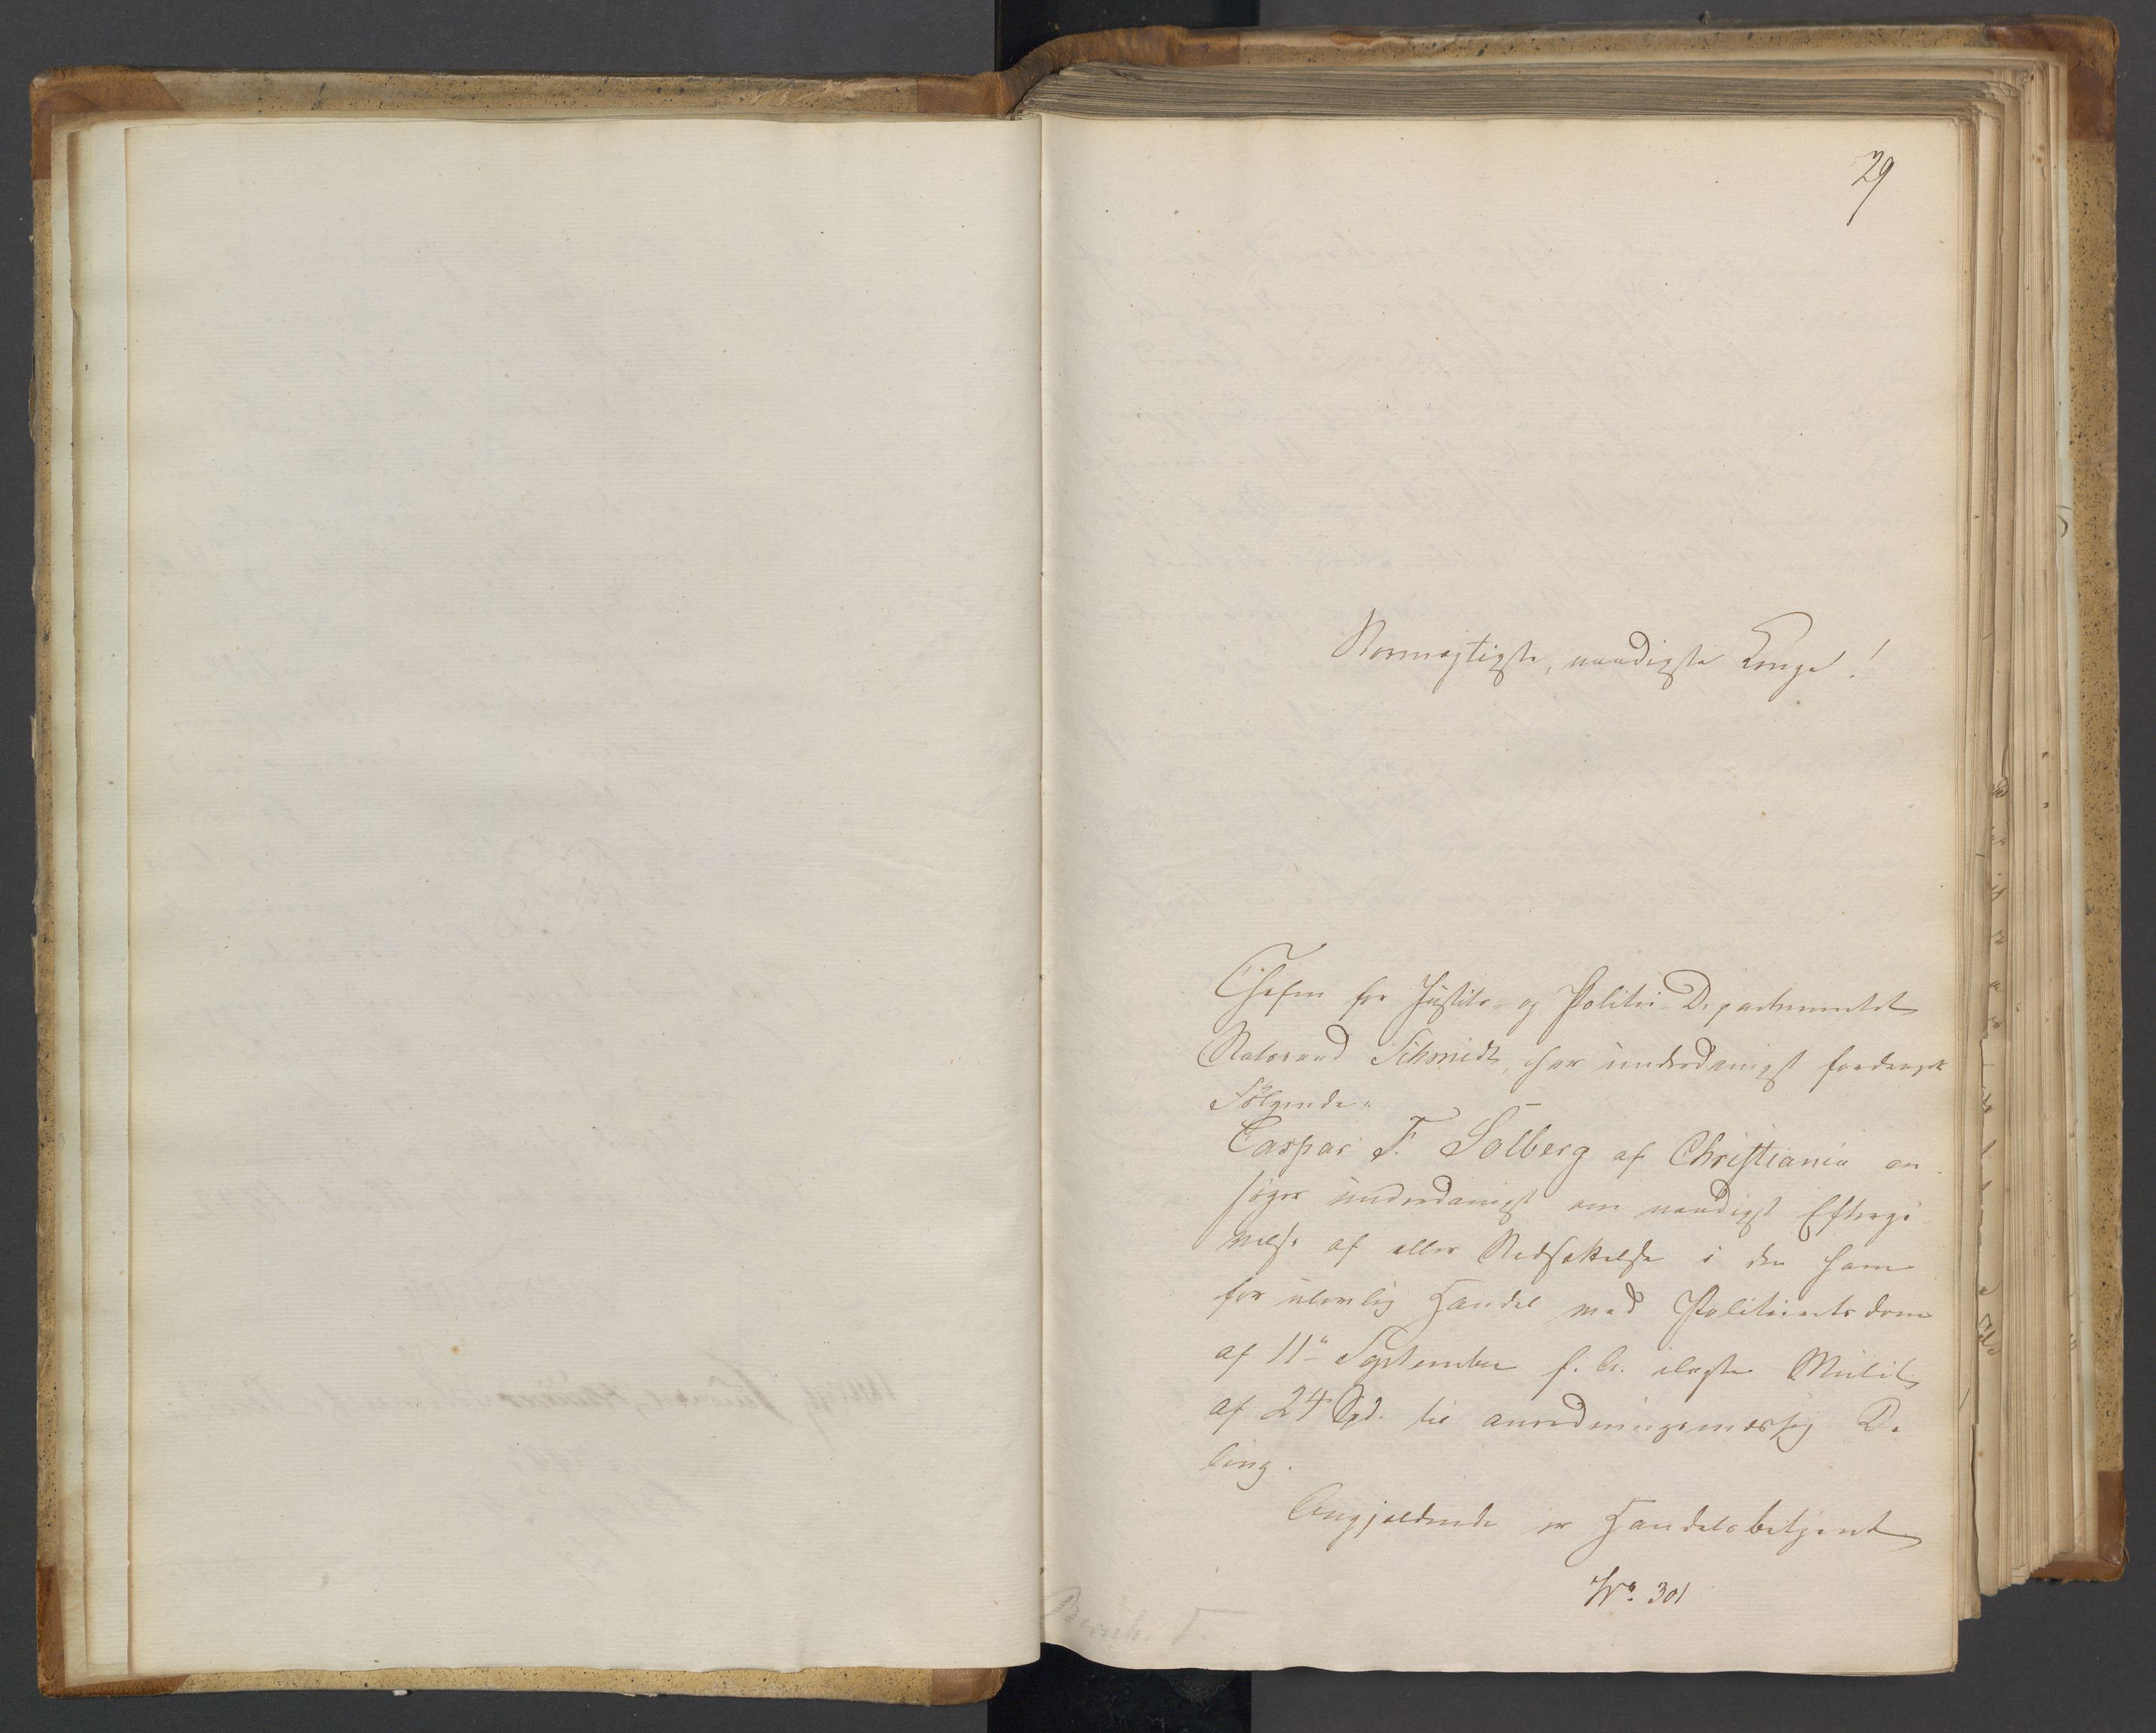 29
Stormægtigste, naadigste Konge!
Chefen for Justits- og Politi-Departementet
Statsraad Schmidt, har underdanigst foredraget
Følgende:
Caspar F. Solberg af Christiania an-
søger underdanigst om naadigst Eftergi-
velse af eller Nedsættelse i den ham
for ulovlig Handel med Politiretsdom
af 11te September f. A. ilagte Mulkt
af 24 Spd. til anordningsmæssig De-
ling.
Angjældende er Handelsbetjent
No. 301